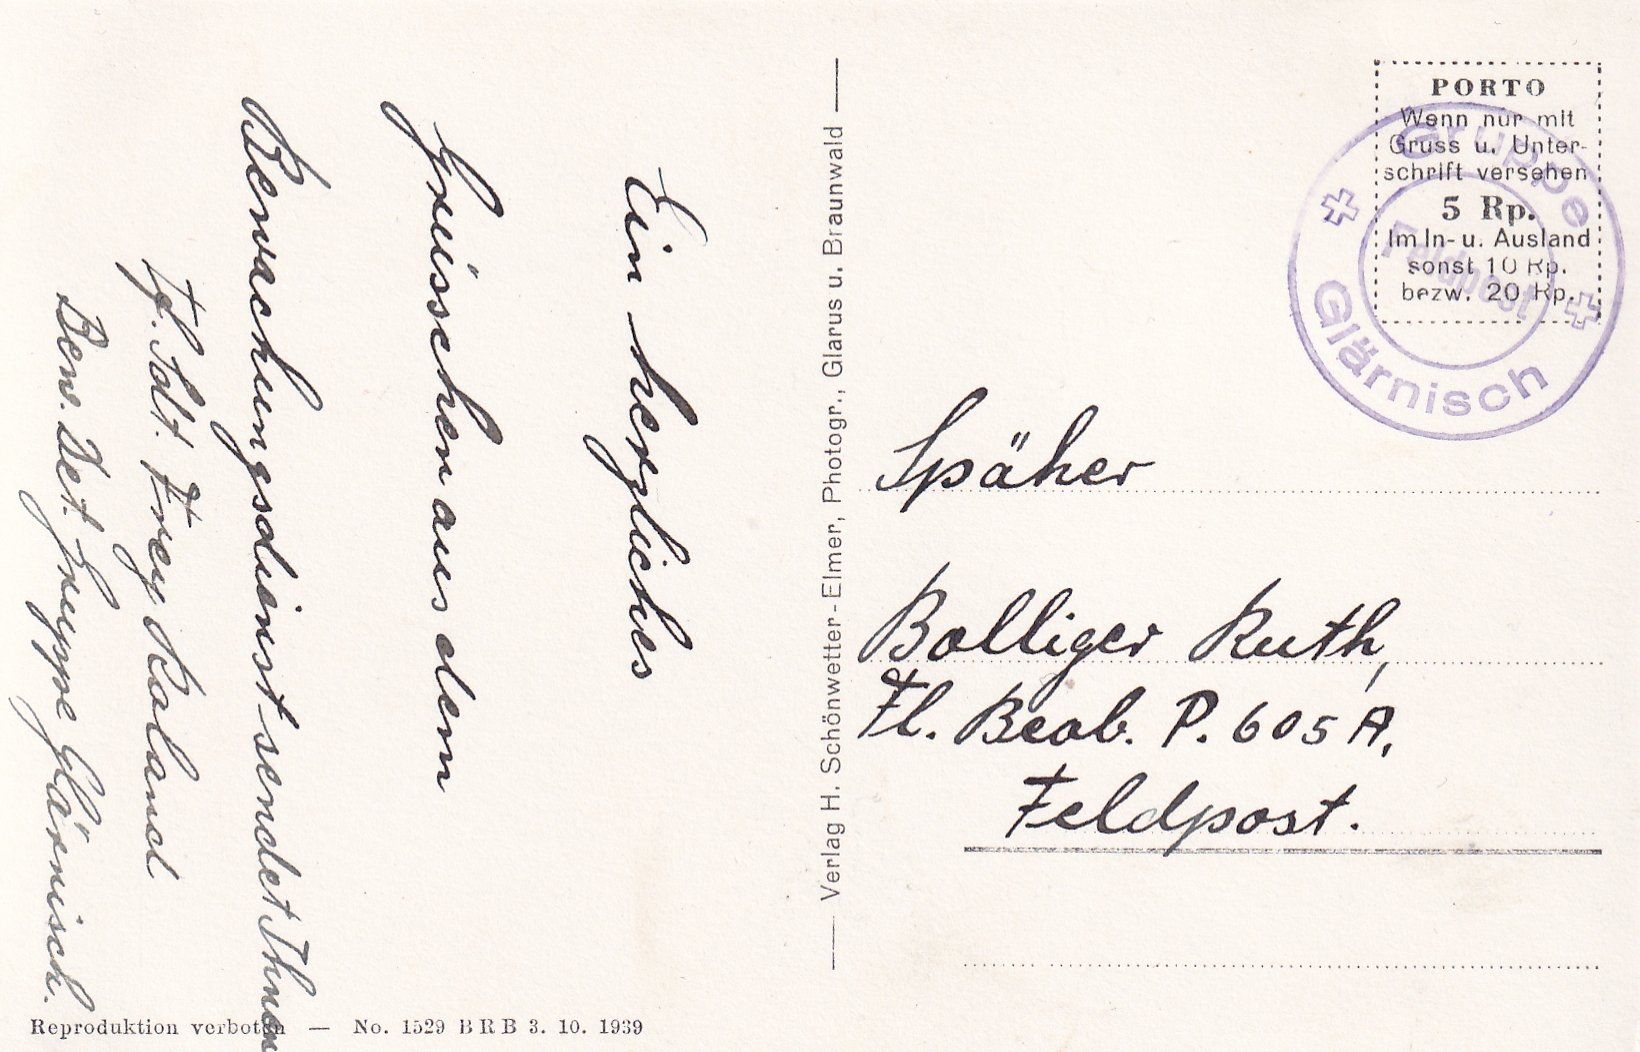 Ein herzliches
Greisschen aus dem
Bewachungsdienst sendet Ihnen
Fl. Sdt. Frey Roland
Bew. Det. Gruppe Glärnisch.
Verlag H. Schönwetter-Elmer, Photogr., Glarus u. Braunwald
PORTO
Wenn nur mit
Gruss u. Unter-
schrift versehen
5 Rp.
Im In- u. Ausland
sonst 10 Rp.
bezw. 20 Rp.
Gruppe
Feldpost
Glärnisch
Späher
Bolliger Ruth,
Fl. Beob. P. 605 A,
Feldpost.
Reproduktion verboten — No. 1529 BRB 3. 10. 1939